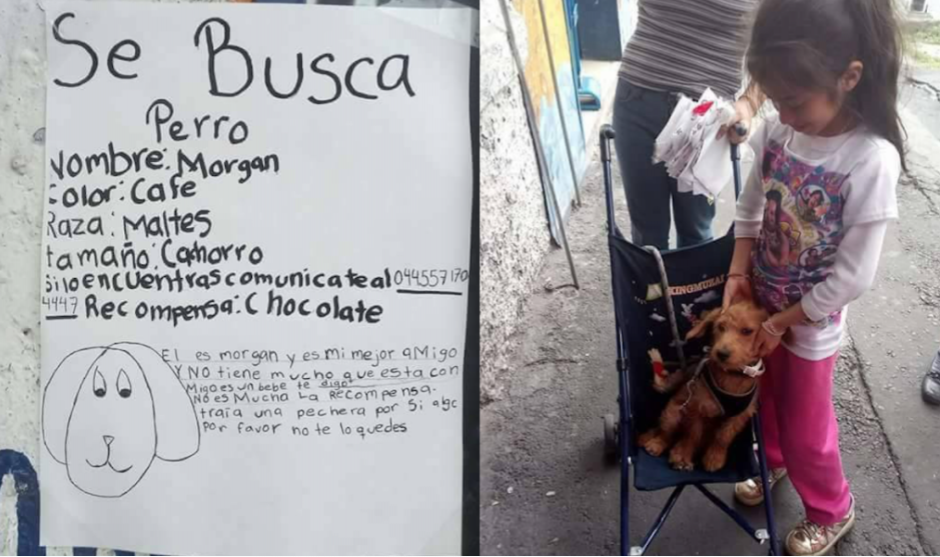 Se Busca
Perro
Nombre: Morgan
Color: Cafe
Raza: Maltes
tamaño: Cahorro
Si lo encuentras comunicate al 044557170
4447 Recompensa: Chocolate
El es morgan y es mi mejor aMigo
Y NO tiene mucho que esta con
Migo es un bebe te digo
NO es Mucha La Recompensa.
traia una pechera por si algo
Por favor no te lo quedes